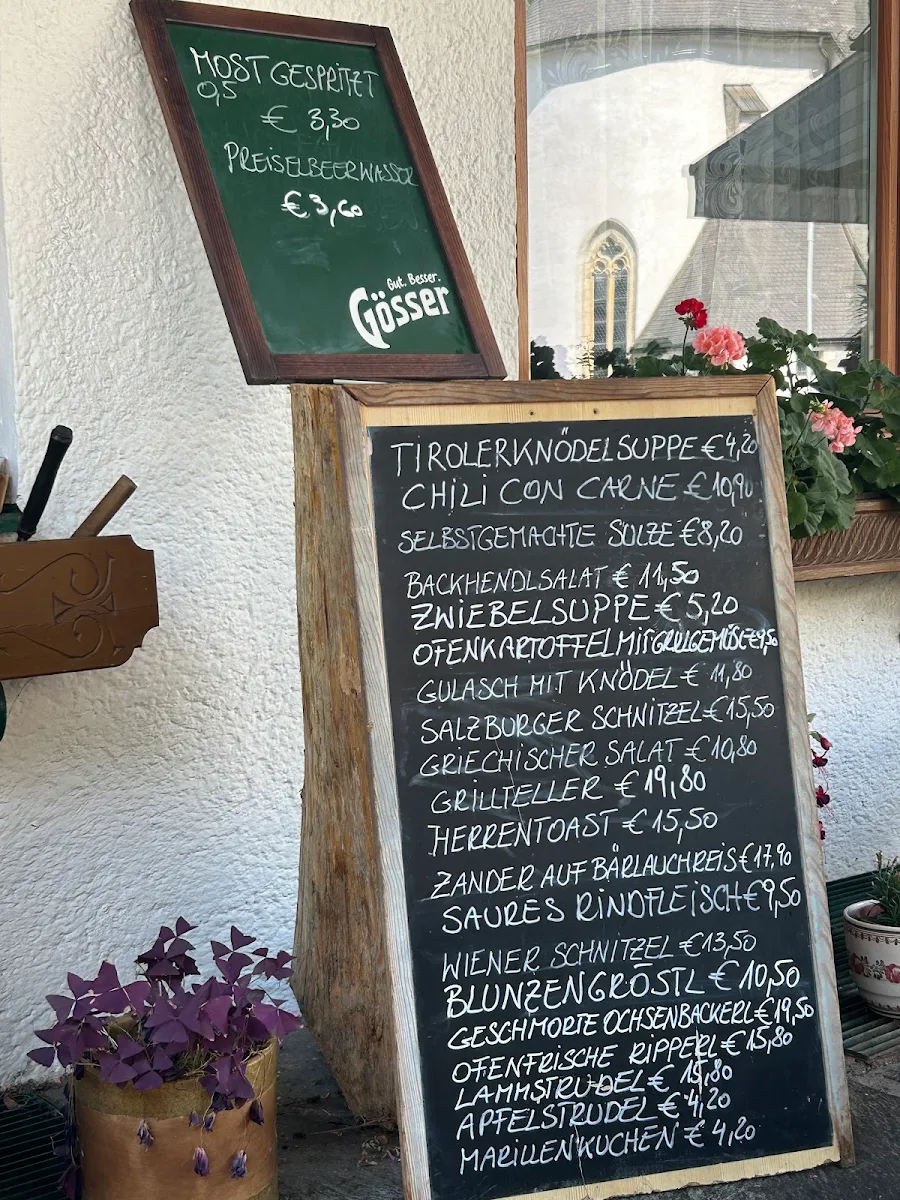 MOST GESPRITZT
0,5
€ 3,30
PREISELBEERWASSER
€ 3,60
Gut. Besser.
Gösser
TIROLERKNÖDELSUPPE € 4,20
CHILI CON CARNE € 10,90
SELBSTGEMACHTE SULZE € 8,20
BACKHENDLSALAT € 11,50
ZWIEBELSUPPE € 5,20
OFENKARTOFFEL MIT GRILLGEMÜSE € 9,50
GULASCH MIT KNÖDEL € 11,80
SALZBURGER SCHNITZEL € 15,50
GRIECHISCHER SALAT € 10,80
GRILLTELLER € 19,80
HERRENTOAST € 15,50
ZANDER AUF BÄRLAUCHREIS € 17,90
SAURES RINDFLEISCH € 9,50
WIENER SCHNITZEL € 13,50
BLUNZENGRÖSTL € 10,50
GESCHMORTE OCHSENBACKERL € 19,50
OFENFRISCHE RIPPERL € 15,80
LAMMSTRUDEL € 15,80
APFELSTRUDEL € 4,20
MARILLENKUCHEN € 4,20